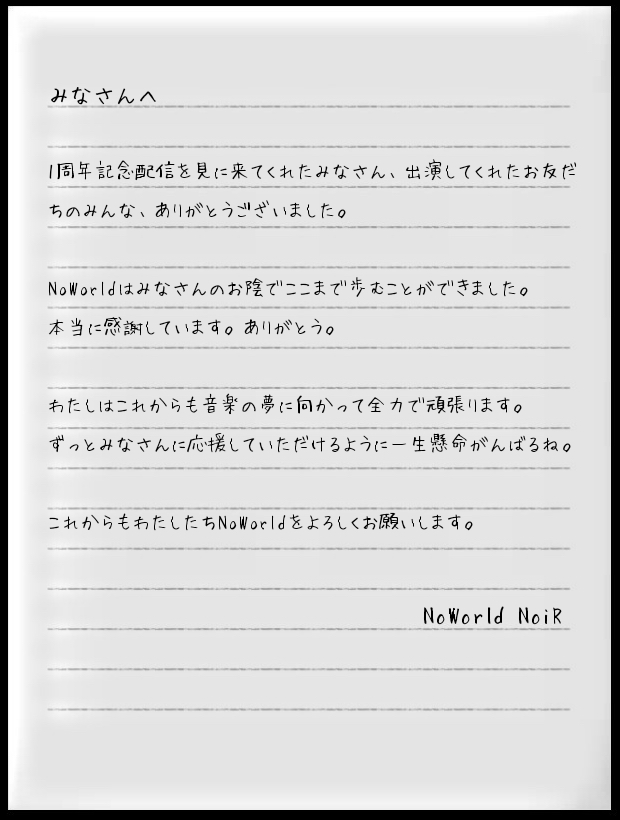 みなさんへ
1周年記念配信を見に来てくれたみなさん、出演してくれたお友だ
ちのみんな、ありがとうございました。
NoWorldはみなさんのお陰でここまで歩むことができました。
本当に感謝しています。ありがとう。
わたしはこれからも音楽の夢に向かって全力で頑張ります。
ずっとみなさんに応援していただけるように一生懸命がんばるね。
これからもわたしたちNoWorldをよろしくお願いします。
NoWorld NoiR